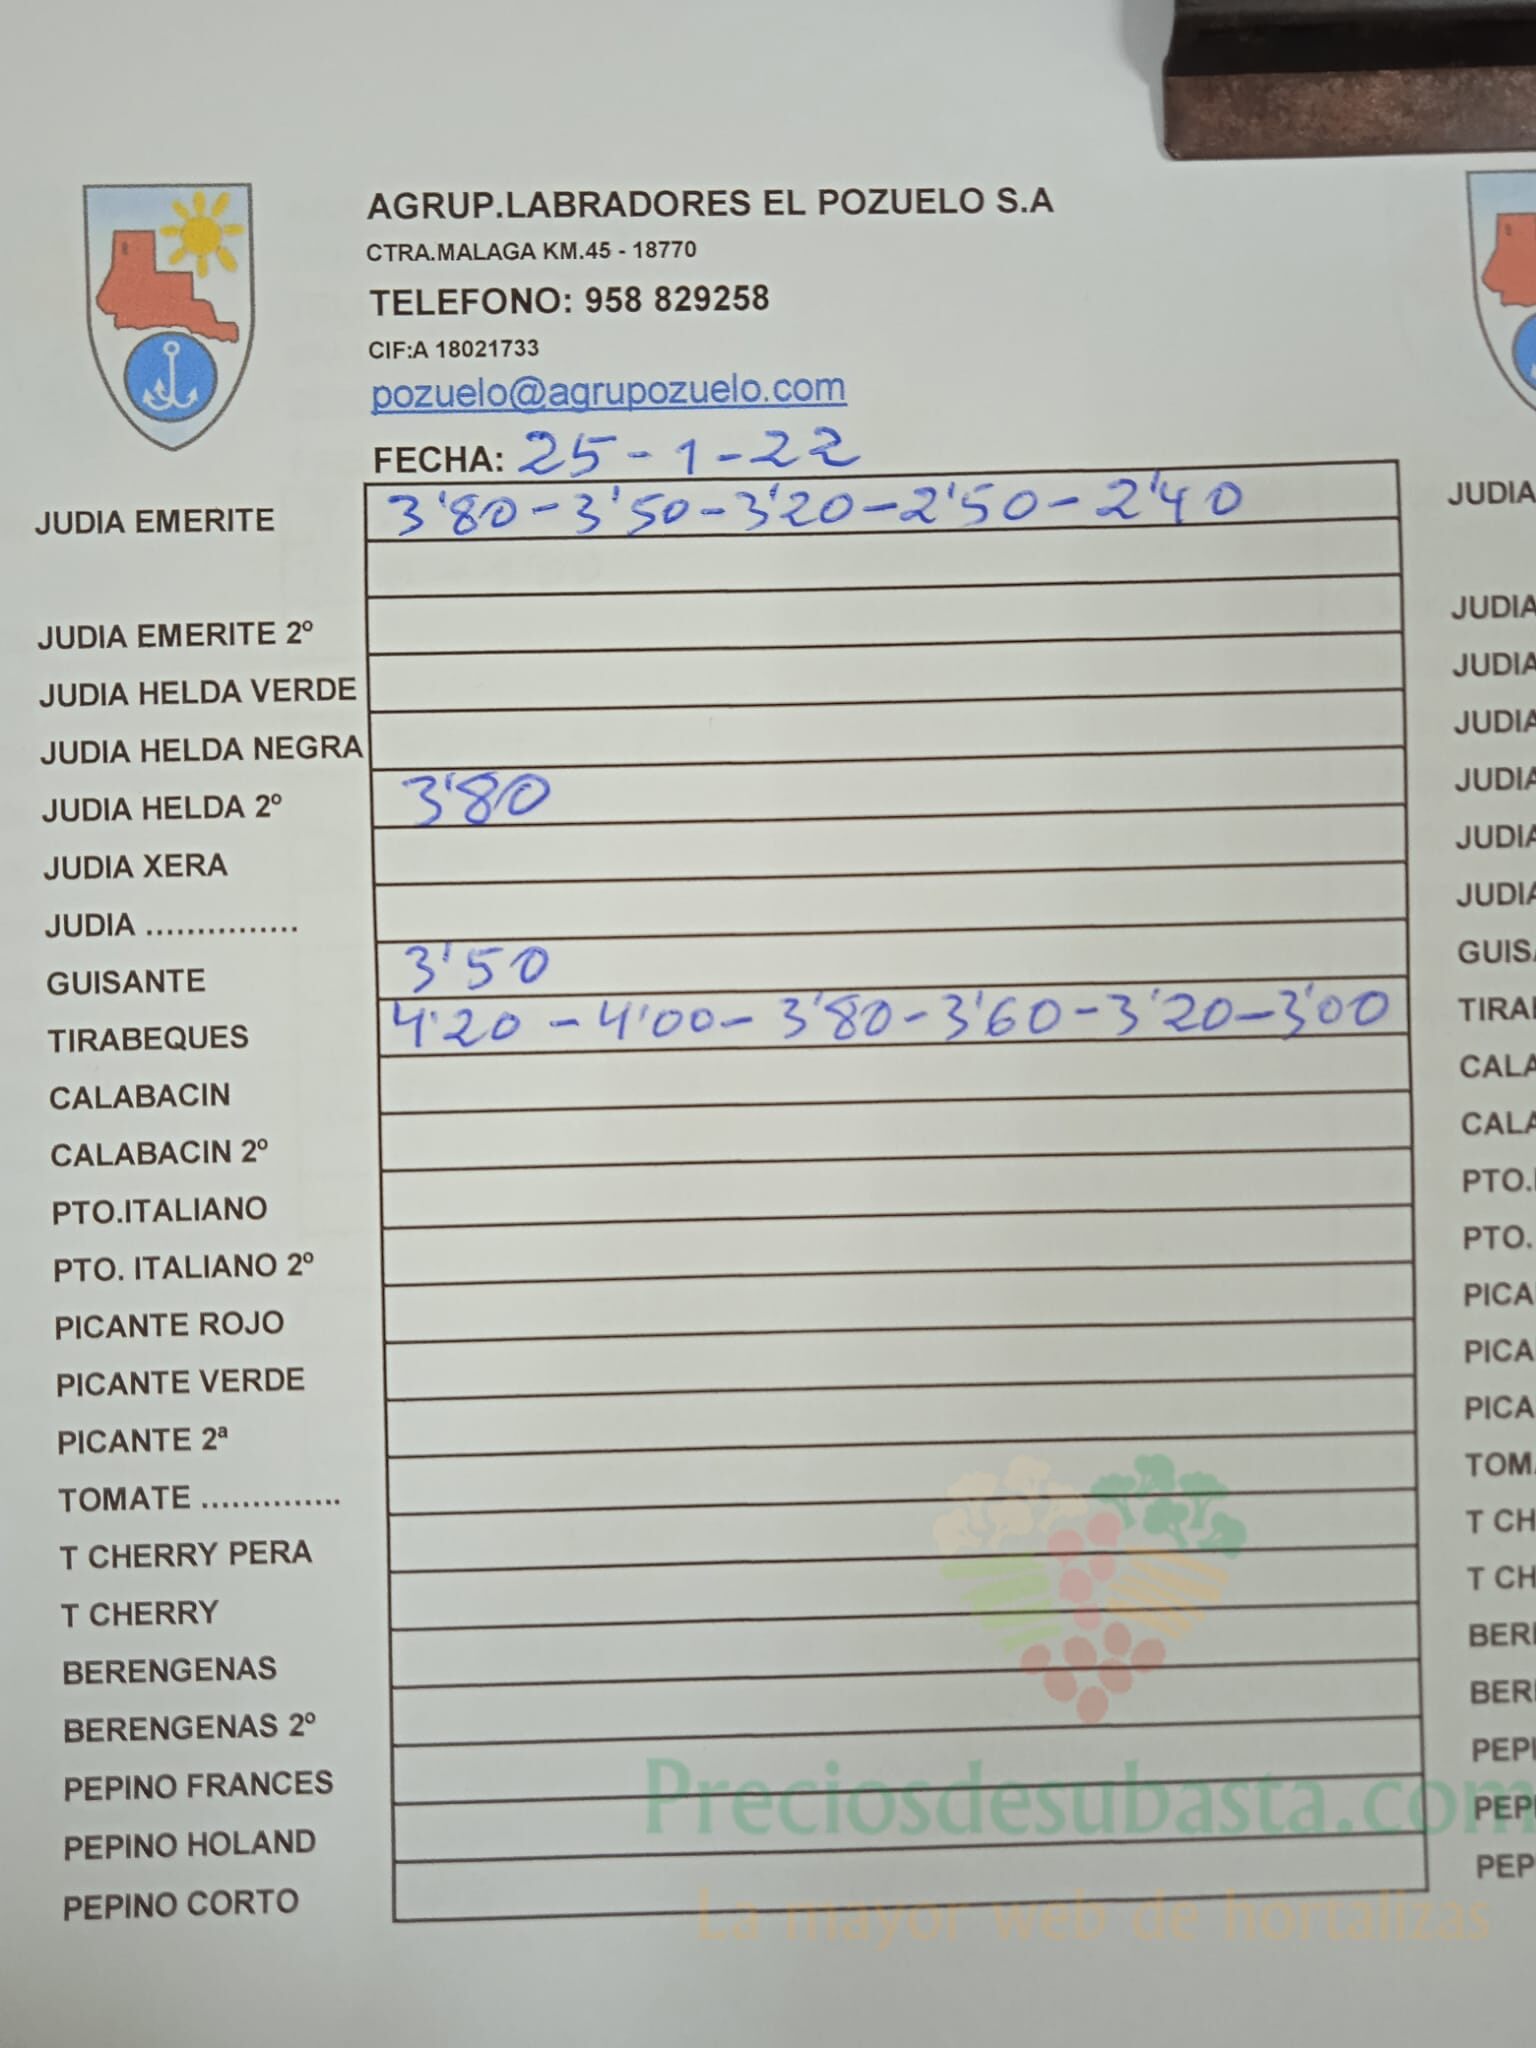 AGRUP.LABRADORES EL POZUELO S.A
CTRA.MALAGA KM.45 - 18770
TELEFONO: 958 829258
CIF:A 18021733
pozuelo@agrupozuelo.com
FECHA: 25-1-22
JUDIA EMERITE 3'80-3'50-3'20-2'50-2'40
JUDIA EMERITE 2º
JUDIA HELDA VERDE
JUDIA HELDA NEGRA
JUDIA HELDA 2º 3'80
JUDIA XERA
JUDIA ...............
GUISANTE 3'50
TIRABEQUES 4'20-4'00-3'80-3'60-3'20-3'00
CALABACIN
CALABACIN 2º
PTO.ITALIANO
PTO. ITALIANO 2º
PICANTE ROJO
PICANTE VERDE
PICANTE 2ª
TOMATE ..............
T CHERRY PERA
T CHERRY
BERENGENAS
BERENGENAS 2º
PEPINO FRANCES
PEPINO HOLAND
PEPINO CORTO
JUDIA
JUDIA
JUDIA
JUDIA
JUDIA
JUDIA
JUDIA
GUISA
TIRAB
CALA
CALA
PTO.I
PTO.
PICA
PICA
PICA
TOMA
T CH
T CH
BERE
BERE
PEPI
PEPI
PEP
Preciosdesubasta.com
La mayor web de hortalizas